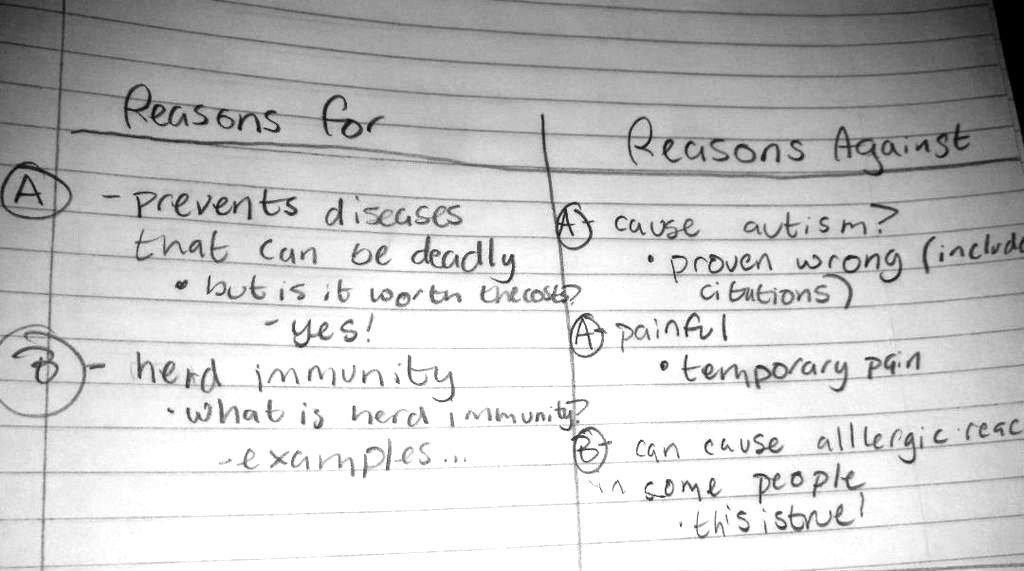 Reasons for
A - prevents diseases
that can be deadly
• but is it worth the costs?
- yes!
B - herd immunity
• what is herd immunity?
- examples...
Reasons Against
A - cause autism?
• proven wrong (include
citations)
A - painful
• temporary pain
B - can cause alllergic reac
in some people
• this is true!